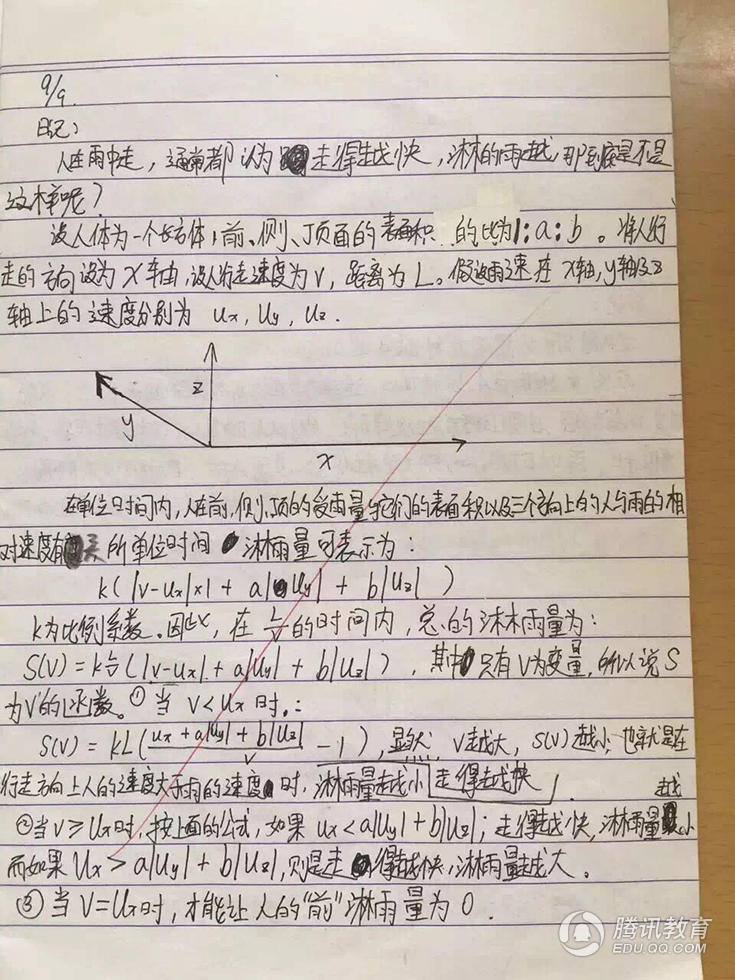 9/9.
日记:
人在雨中走，通常都认为走得越快，淋的雨越，那到底是不是
这样呢？
设人体为一个长方体，前、侧、顶面的表面积的比为1:a:b。将人行
走的方向设为X轴，设人行走速度为v，距离为L。假设雨速在X轴，y轴及z
轴上的速度分别为 ux, uy, uz.
z
y
x
在单位时间内，人在前，侧，顶的受雨量与它们的表面积以及三个方向上的人与雨的相
对速度有关 所单位时间淋雨量可表示为：
k(|v-ux|x1 + a|uy| + b|uz|)
k为比例系数。因此，在 L/v 的时间内，总的淋雨量为：
S(v)=k L/v (|v-ux| + a|uy| + b|uz|)，其中只有v为变量，所以说S
为v的函数。①当 v<ux 时.:
S(v) = kL( (ux + a|uy| + b|uz|)/v - 1)，显然 v越大，S(v)越小，也就是在
行走方向上人的速度大于雨的速度时，淋雨量越小 走得越快
越
②当v≥ux时，按上面的公式，如果 ux<a|uy|+b|uz|；走得越快，淋雨量小
而如果 ux>a|uy|+b|uz|，则是走得越快，淋雨量越大。
③当v=ux时，才能让人的"前"淋雨量为0.
腾讯教育
EDU.QQ.COM